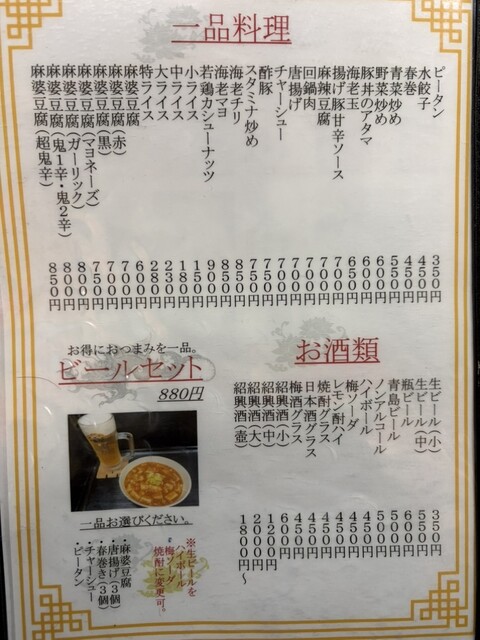 一品料理
ピータン 350円
水餃子 450円
春巻 450円
青菜炒め 550円
野菜炒め 600円
豚丼のアタマ 600円
海老玉 650円
揚げ豚甘辛ソース 700円
麻辣豆腐 700円
回鍋肉 700円
唐揚げ 700円
チャーシュー 750円
酢豚 750円
スタミナ炒め 750円
海老チリ 850円
海老マヨ 850円
若鶏カシューナッツ 900円
小ライス 150円
中ライス 180円
大ライス 230円
特ライス 280円
麻婆豆腐 600円
麻婆豆腐(赤) 700円
麻婆豆腐(黒) 750円
麻婆豆腐(マヨネーズ) 750円
麻婆豆腐(ガーリック) 800円
麻婆豆腐(鬼1辛・鬼2辛) 800円
麻婆豆腐(超鬼辛) 850円
お酒類
生ビール(小) 350円
生ビール(中) 550円
瓶ビール 600円
青島ビール 500円
ノンアルコール 500円
ハイボール 450円
梅ソーダ 450円
レモン酎ハイ 450円
焼酎グラス 450円
日本酒グラス 450円
梅酒グラス 450円
紹興酒(小) 600円
紹興酒(中) 1200円
紹興酒(大) 2000円
紹興酒(壺) 1800円〜
お得におつまみを一品。
ビールセット
880円
一品お選びください。
※生ビールを
ハイボール
梅ソーダ
焼酎に変更可。
・麻婆豆腐
・唐揚げ(3個)
・春巻き(3個)
・チャーシュー
・ピータン